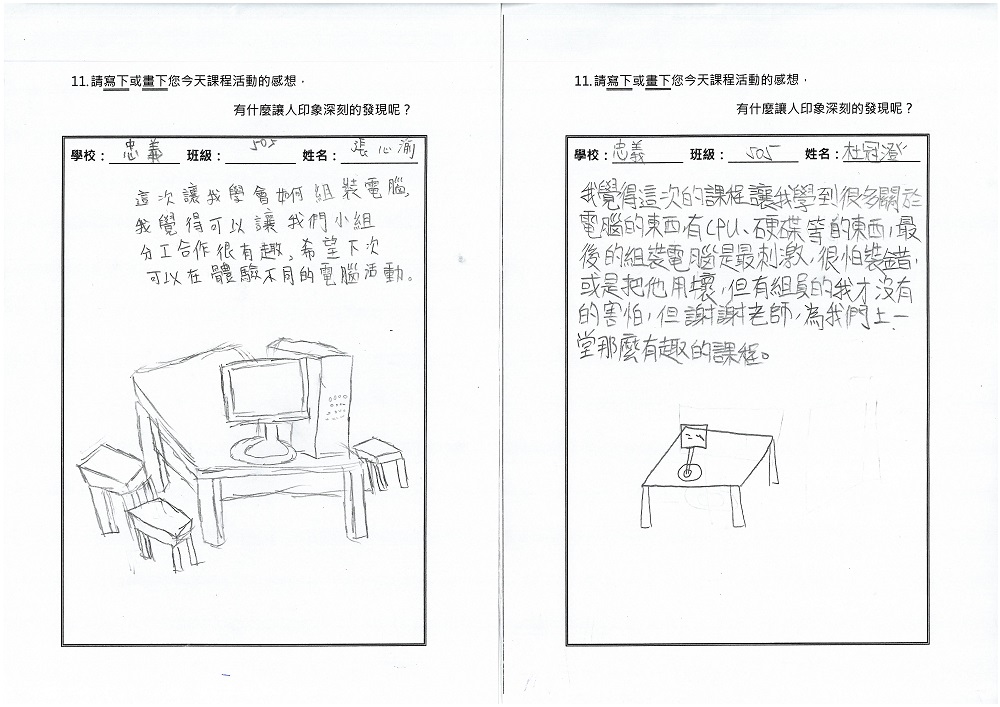 11.請寫下或畫下您今天課程活動的感想，
有什麼讓人印象深刻的發現呢？
學校：忠義 班級：505 姓名：張心渝
這次讓我學會如何組裝電腦,
我覺得可以讓我們小組
分工合作很有趣,希望下次
可以在體驗不同的電腦活動。
11.請寫下或畫下您今天課程活動的感想，
有什麼讓人印象深刻的發現呢？
學校：忠義 班級：505 姓名：杜冠澄
我覺得這次的課程讓我學到很多關於
電腦的東西,有CPU、硬碟等的東西,最
後的組裝電腦是最刺激,很怕裝錯,
或是把他用壞,但有組員的我才沒有
的害怕,但謝謝老師,為我們上一
堂那麼有趣的課程。